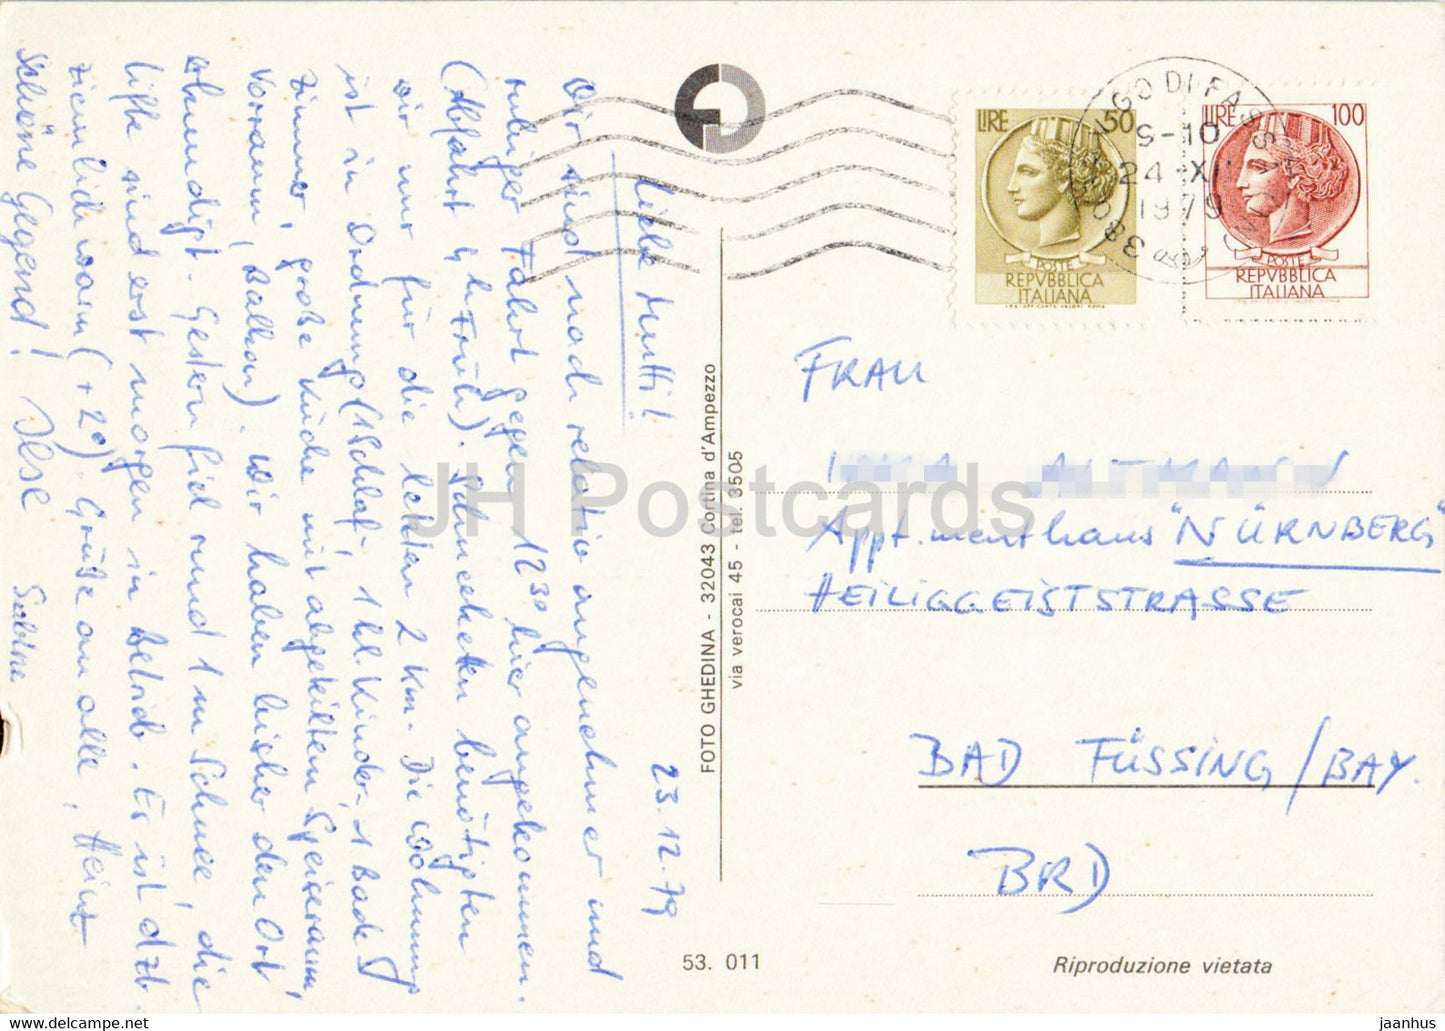 23.12.79
Liebe Mutti!
Wir sind nach relativ angenehmer und
ruhiger Fahrt gegen 12³⁰ hier angekommen.
(Abfahrt 4 h früh). Schneeketten benötigten
wir nur für die letzten 2 km. Die Wohnung
ist in Ordnung (1 Schlaf-, 1 kl. Kinder-, 1 Bade-
zimmer, große Küche mit abgeteiltem Speiseraum,
Vorraum, Balkon). Wir haben bisher den Ort
erkundigt. Gestern fiel rund 1 m Schnee, die
Lifte sind erst morgen in Betrieb. Es ist dzt.
ziemlich warm (+2°). Grüße an alle, Heinz
schöne Gegend! Ilse Sabine
FOTO GHEDINA - 32043 Cortina d'Ampezzo
via verocai 45 - tel. 3505
LIRE 50
POSTE
REPVBBLICA
ITALIANA
LIRE 100
POSTE
REPVBBLICA
ITALIANA
GO DI FASSA
9-10
24 XII
1979
FRAU
ALTMANN
Appt.menthaus "NÜRNBERG"
HEILIGGEISTSTRASSE
BAD FÜSSING/BAY.
BRD
53. 011
Riproduzione vietata
JH Postcards
https://jaanhus.net/
jaanhus